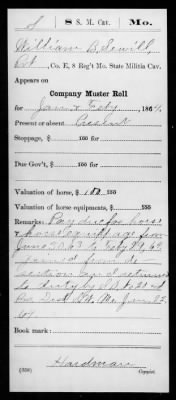 S | 8 S. M. Cav. | Mo.
William B. Sewill
Pvt, Co. E, 8 Reg't Mo. State Militia Cav.
Appears on
Company Muster Roll
for Jan & Feby, 1864.
Present or absent Present
Stoppage, $ 100 for
Due Gov't, $ 100 for
Valuation of horse, $ 100
Valuation of horse equipments, $ 100
Remarks: Pay due for horse
& horse equipage from
June 30, 63 to Feby 29, 64
from de-
sertion and returned
to duty by S.O. 
Jan 23,
64
Book mark:
Hardman
(358) Copyist.